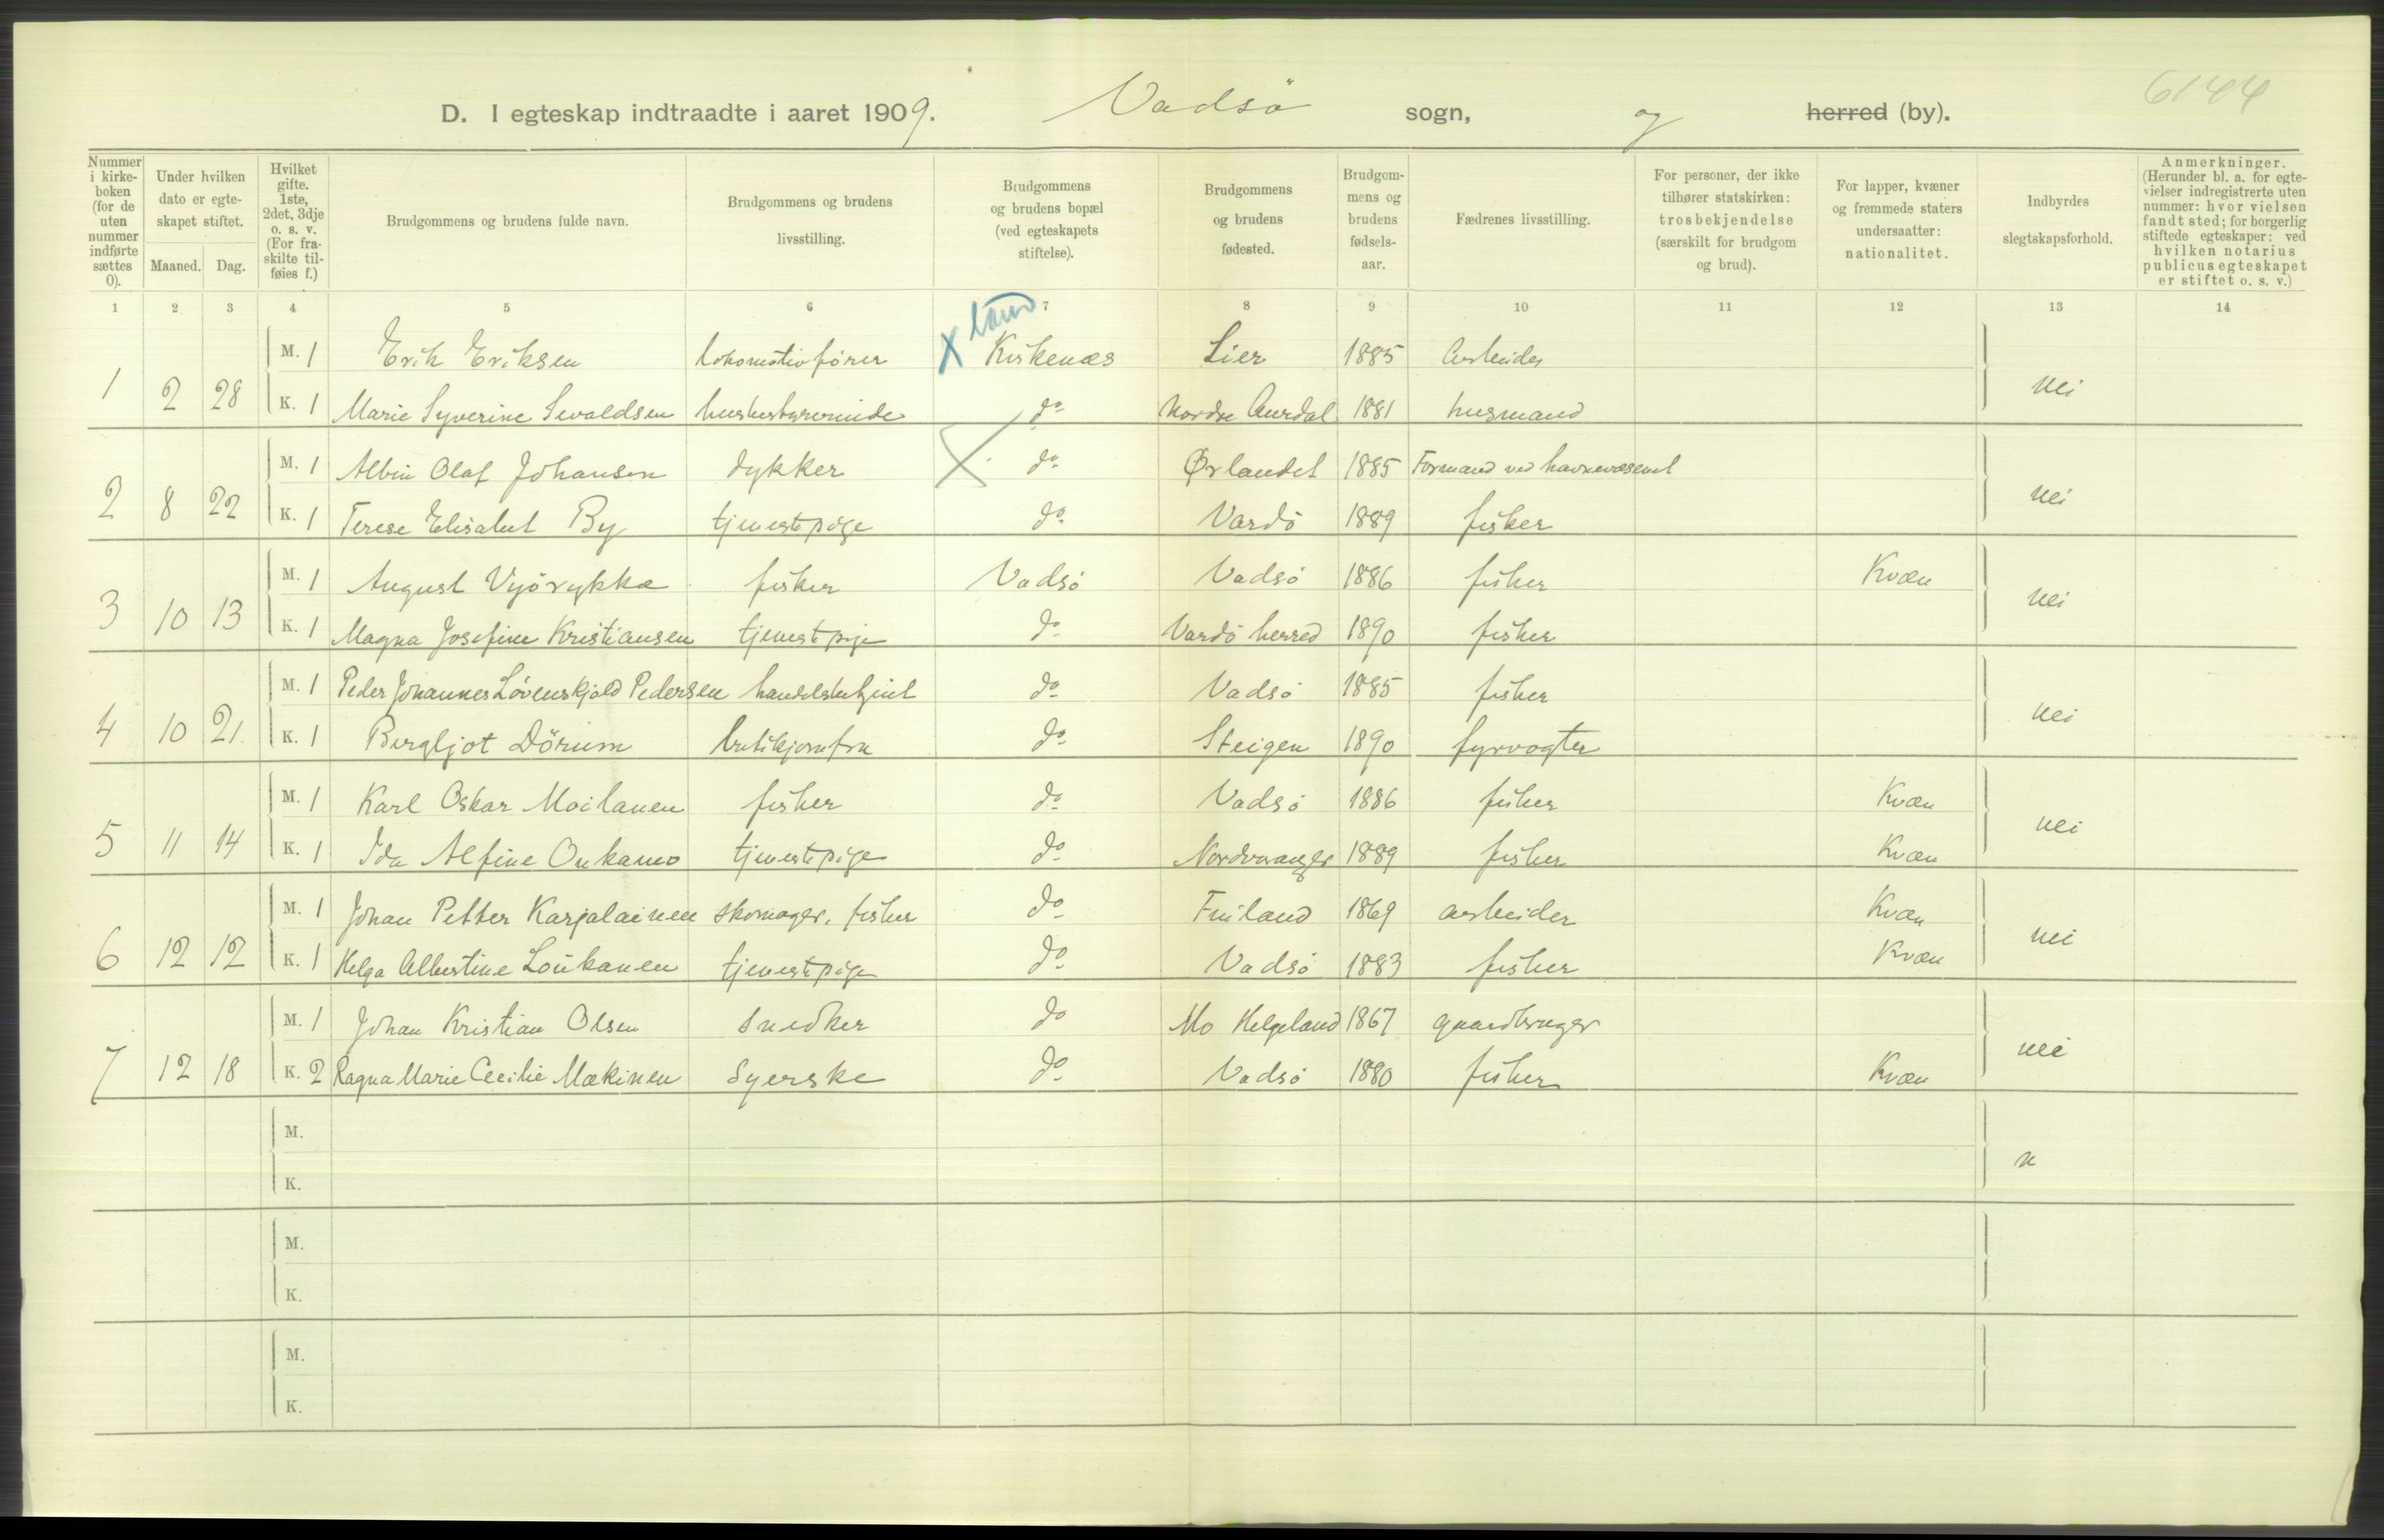 6144
D. I egteskap indtraadte i aaret 1909. Vadsö sogn, og herred (by).
Nummer i kirkeboken (for de uten nummer indførte sættes 0).
Under hvilken dato er egteskapet stiftet.
Maaned. Dag.
Hvilket gifte. 1ste, 2det, 3dje o. s. v. (For fraskilte tilføies f.)
Brudgommens og brudens fulde navn.
Brudgommens og brudens livsstilling.
Brudgommens og brudens bopæl (ved egteskapets stiftelse).
Brudgommens og brudens fødested.
Brudgommens og brudens fødselsaar.
Fædrenes livsstilling.
For personer, der ikke tilhører statskirken: trosbekjendelse (særskilt for brudgom og brud).
For lapper, kvæner og fremmede staters undersaatter: nationalitet.
Indbyrdes slegtskapsforhold.
Anmerkninger. (Herunder bl. a. for egtevielser indregistrerte uten nummer: hvor vielsen fandt sted; for borgerlig stiftede egteskaper: ved hvilken notarius publicus egteskapet er stiftet o. s. v.)
1 2 3 4 5 6 7 8 9 10 11 12 13 14
M. 1 Erik Eriksen lokomotivfører X Kirkenæs Lier 1885 Arbeider
1 2 28 K. 1 Marie Syverine Sevaldsen husbestyrerinde do Nordre Aurdal 1881 husmand nei
M. 1 Albin Olaf Johansen dykker X do Ørlandet 1885 Formand ved havnevæsenet
2 8 22 K. 1 Terese Elisabet By tjenestepige do Vardö 1889 fisker nei
M. 1 August Vyörykkä fisker Vadsö Vadsö 1886 fisker Kvæn
3 10 13 K. 1 Magna Josefine Kristiansen tjenestepige do Vardö herred 1890 fisker nei
M. 1 Peder Johannes Lövenskjold Pedersen handelsbetjent do Vadsö 1885 fisker
4 10 21. K. 1 Bergljot Dörum butikjomfru do Steigen 1890 fyrvogter nei
M. 1 Karl Oskar Moilanen fisker do Vadsö 1886 fisker Kvæn
5 11 14 K. 1 Ida Alfine Onkamo tjenestepige do Nordvaranger 1889 fisker Kvæn nei
M. 1 Johan Petter Karjalainen skomager, fisker do Finland 1869 arbeider Kvæn
6 12 12 K. 1 Helga Albertine Loukanen tjenestepige do Vadsö 1883 fisker Kvæn nei
M. 1 Johan Kristian Olsen Snedker do Mo Helgeland 1867 gaardbruger
7 12 18 K. 2 Ragna Marie Cecilie Mækinen Syerske do Vadsö 1880 fisker Kvæn nei
M.
K. n
M.
K.
M.
K.